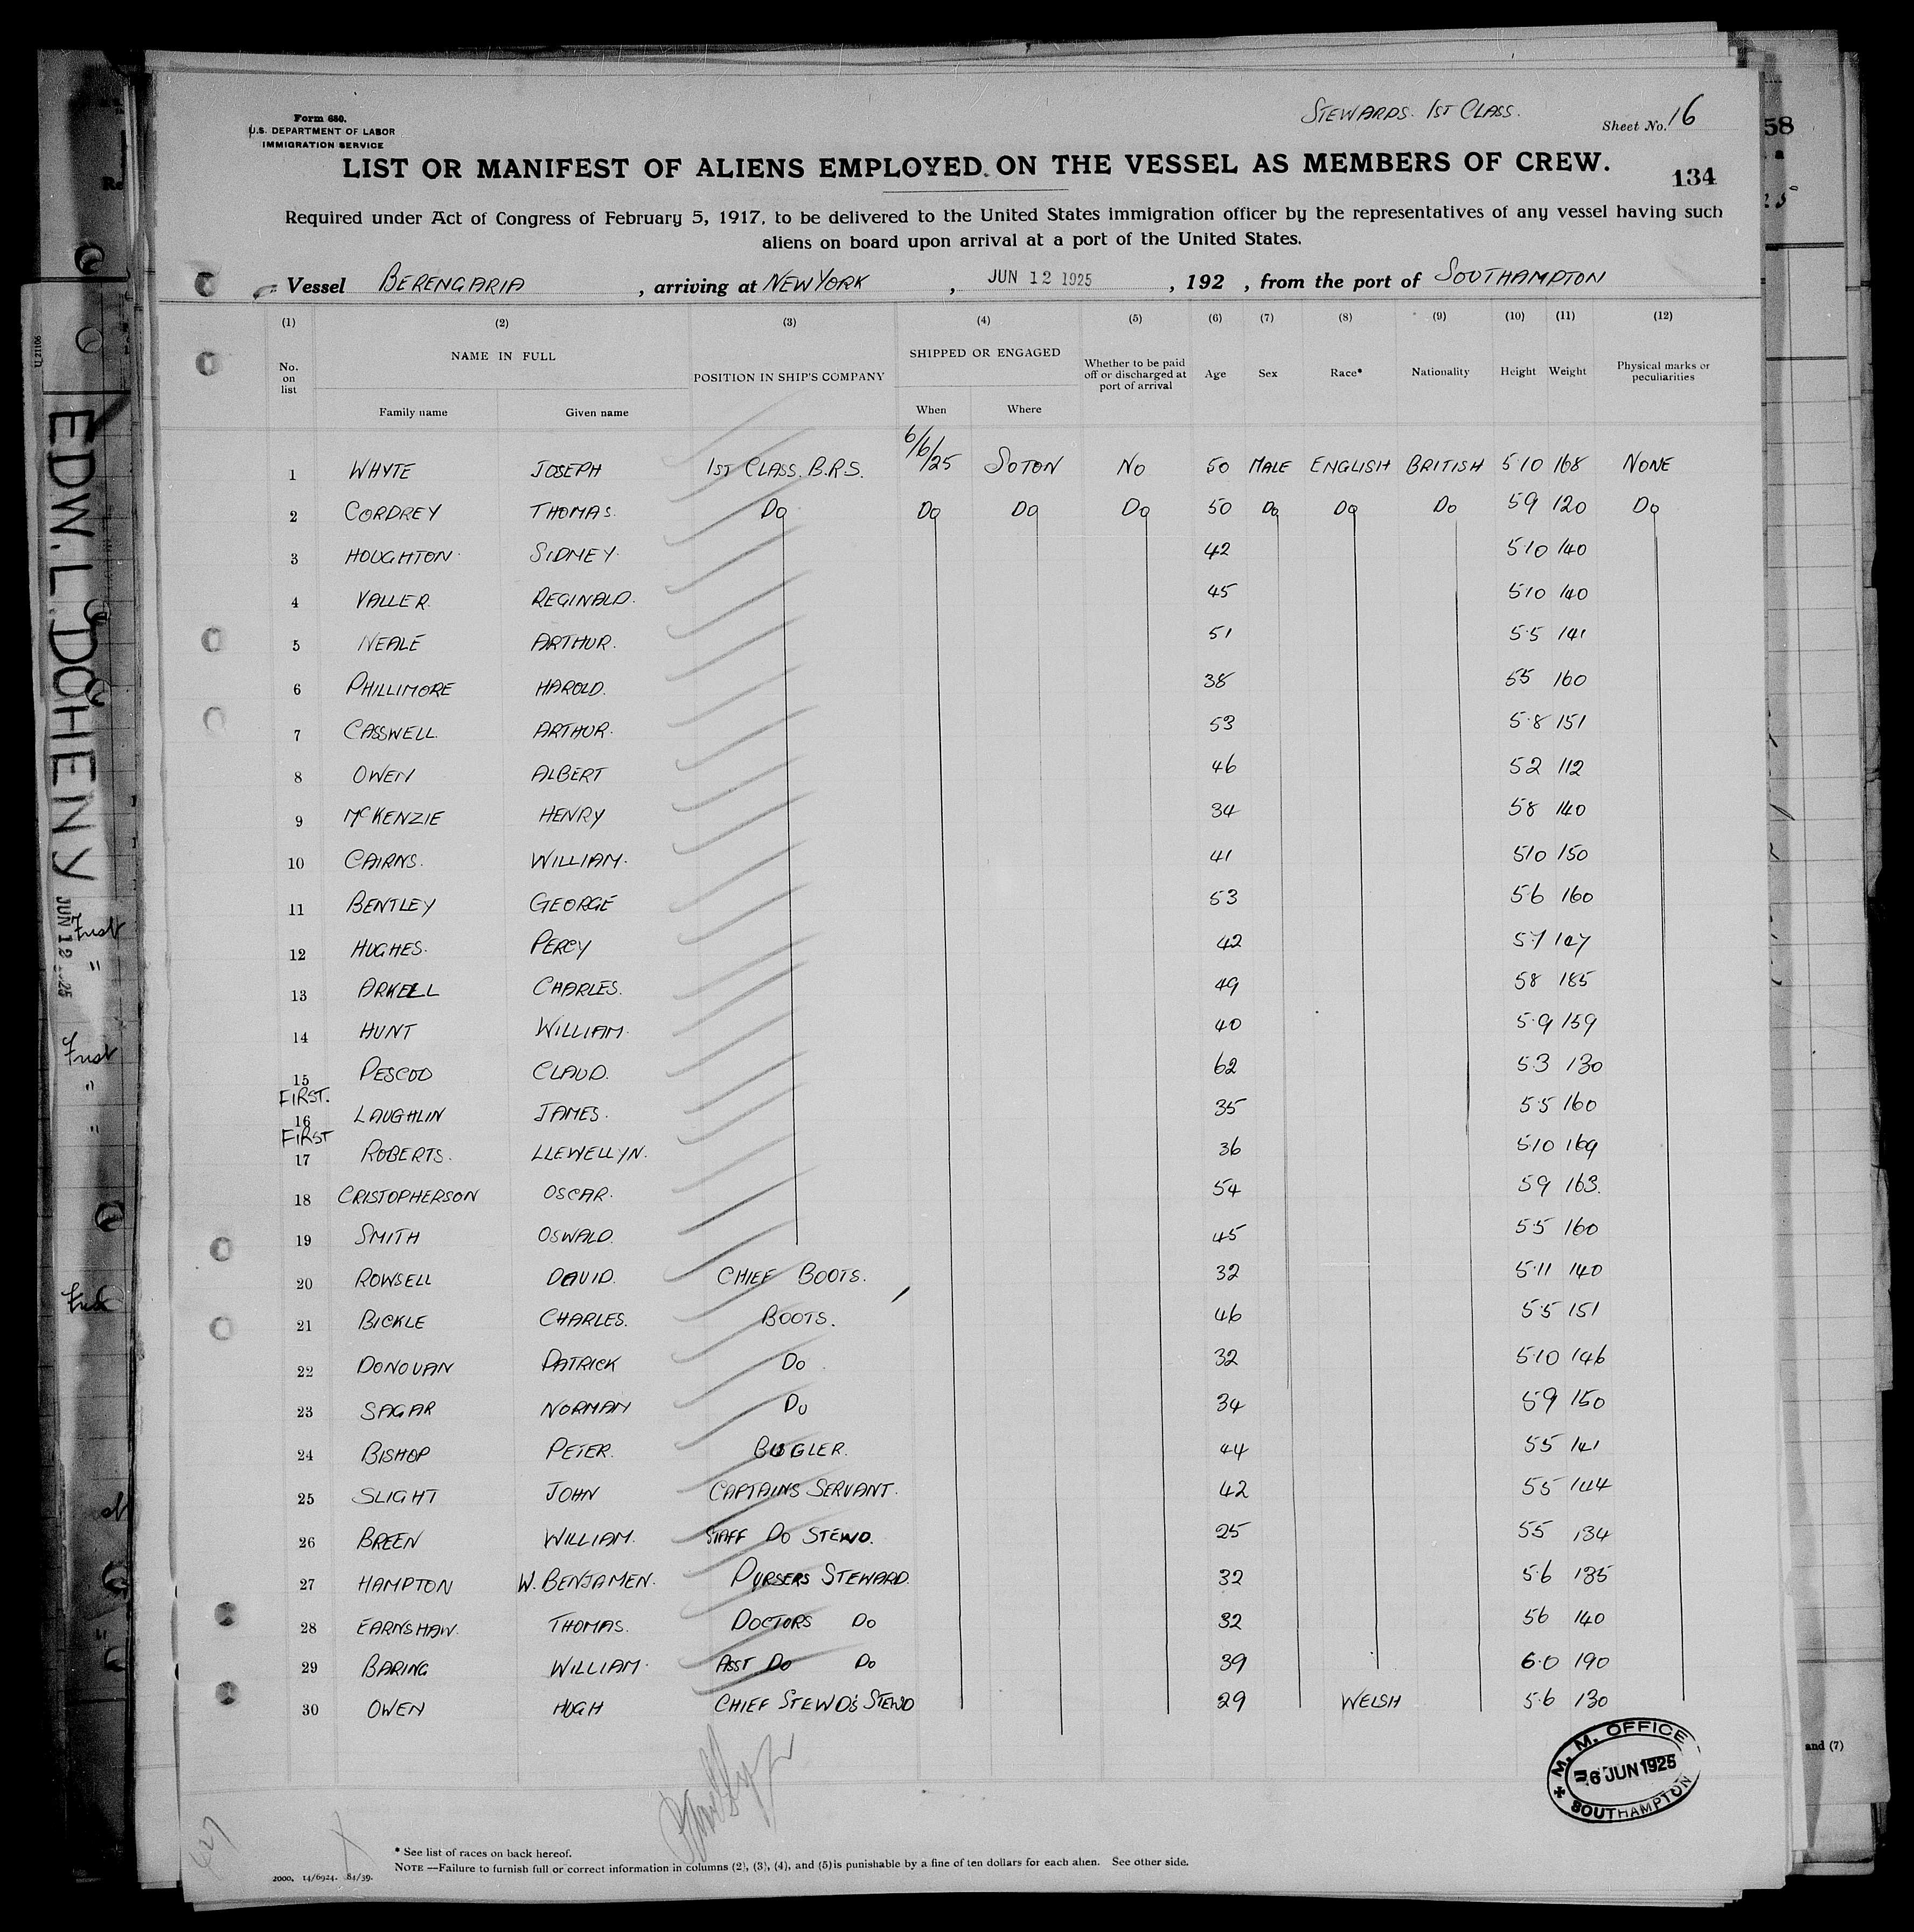 STEWARDS. 1ST CLASS.
Form 680.
U.S. DEPARTMENT OF LABOR
IMMIGRATION SERVICE
Sheet No. 16
LIST OR MANIFEST OF ALIENS EMPLOYED ON THE VESSEL AS MEMBERS OF CREW.
134
Required under Act of Congress of February 5, 1917, to be delivered to the United States immigration officer by the representatives of any vessel having such
aliens on board upon arrival at a port of the United States.
Vessel BERENGARIA , arriving at NEW YORK , JUN 12 1925 , 192 , from the port of SOUTHAMPTON
(1) (2) (3) (4) (5) (6) (7) (8) (9) (10) (11) (12)
No. on list NAME IN FULL POSITION IN SHIP'S COMPANY SHIPPED OR ENGAGED Whether to be paid off or discharged at port of arrival Age Sex Race* Nationality Height Weight Physical marks or peculiarities
Family name Given name When Where
1 WHYTE JOSEPH 1ST CLASS. B.R.S. 6/6/25 SOTON NO 50 MALE ENGLISH BRITISH 5 10 168 NONE
2 CORDREY THOMAS. DO DO DO DO 50 DO DO DO 5 9 120 DO
3 HOUGHTON SIDNEY. 42 5·10 140
4 VALLER. REGINALD. 45 5 10 140
5 NEALE ARTHUR. 51 5·5 141
6 PHILLIMORE HAROLD. 38 5 5 160
7 CASSWELL. ARTHUR. 53 5·8 151
8 OWEN ALBERT 46 5 2 112
9 McKENZIE HENRY 34 5 8 140
10 CAIRNS. WILLIAM. 41 5 10 150
11 BENTLEY GEORGE 53 5 6 160
12 HUGHES. PERCY 42 5·7
13 ARKELL CHARLES. 49 5 8 185
14 HUNT WILLIAM. 40 5·9 159
15 PESCOD CLAUD. 62 5·3 130
FIRST.
16 LAUGHLIN JAMES. 35 5·5 160
FIRST
17 ROBERTS. LLEWELLYN. 36 5·10 169
18 CRISTOPHERSON OSCAR. 54 5 9 163.
19 SMITH OSWALD. 45 5 5 160
20 ROWSELL DAVID. CHIEF BOOTS. 32 5·11 140
21 BICKLE CHARLES. BOOTS. 46 5·5 151
22 DONOVAN PATRICK DO 32 5·10 146
23 SAGAR NORMAN DO 34 5 9 150
24 BISHOP PETER. BUGLER. 44 5 5 141
25 SLIGHT JOHN CAPTAINS SERVANT. 42 5 5 144
26 BREEN WILLIAM. STAFF DO STEWD. 25 5 5 134
27 HAMPTON W. BENJAMEN. PURSERS STEWARD. 32 5·6 135
28 EARNSHAW. THOMAS. DOCTORS DO 32 5 6 140
29 BARING WILLIAM. ASST DO DO 39 6·0 190
30 OWEN HUGH CHIEF STEWD'S STEWD 29 WELSH 5·6 130
M. M. OFFICE
6 JUN 1925
SOUTHAMPTON
* See list of races on back hereof.
NOTE —Failure to furnish full or correct information in columns (2), (3), (4), and (5) is punishable by a fine of ten dollars for each alien. See other side.
2000. 14/6924. 84/39.
EDW. L. DOHENY
JUN 12 1925
First
"
First
"
"
58
and (7)